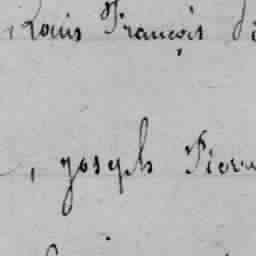 , Louis François
, joseph Pierr